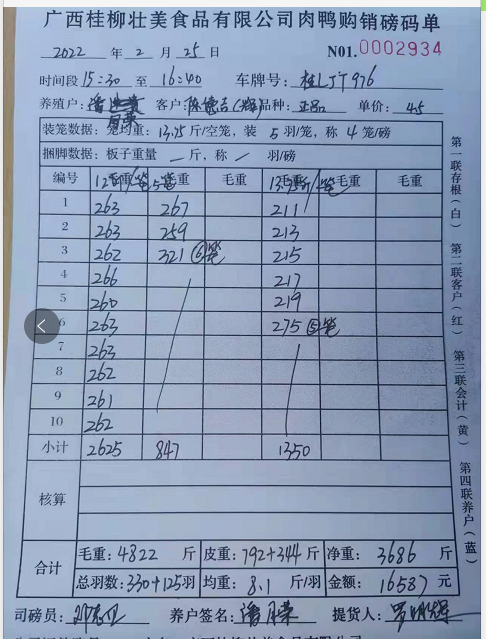 广西桂柳壮美食品有限公司肉鸭购销磅码单
2022 年 2 月 25 日 N01.0002934
时间段 15:30 至 16:40 车牌号: 桂LJT976
养殖户: 客户: 品种: 正品 单价: 4.5
装笼数据: 笼均重: 13.75 斤/空笼, 装 5 羽/笼, 称 4 笼/磅
捆脚数据: 板子重量 — 斤, 称 / 羽/磅
编号 毛重 毛重 毛重 毛重 毛重
1 263 267 211
2 263 259 213
3 262 321 ⑥笼 215
4 266 217
5 260 219
6 263 275 ⑤笼
7 263
8 262
9 261
10 262
小计 2625 847 1350
核算
合计 毛重: 4822 斤 皮重: 792+344 斤 净重: 3686 斤
总羽数: 330+125羽 均重: 8.1 斤/羽 金额: 16587 元
司磅员: 养户签名: 潘月荣 提货人:
第一联存根(白)
第二联客户(红)
第三联会计(黄)
第四联养户(蓝)